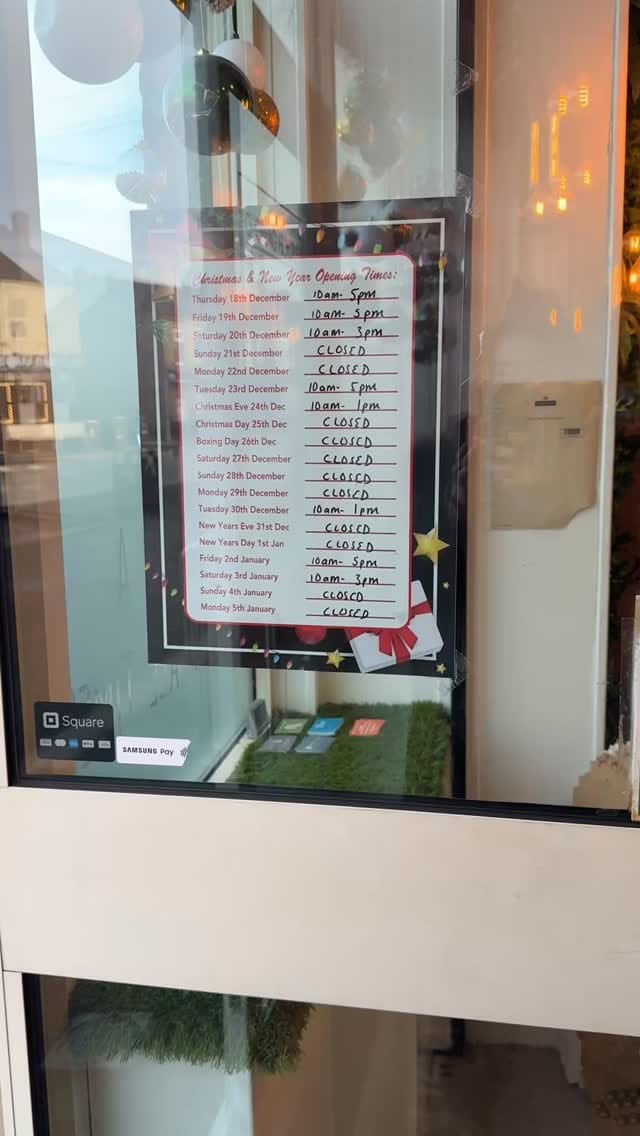 Christmas & New Year Opening Times:
Thursday 18th December 10am- 5pm
Friday 19th December 10am- 5pm
Saturday 20th December 10am- 3pm
Sunday 21st December CLOSED
Monday 22nd December CLOSED
Tuesday 23rd December 10am- 5pm
Christmas Eve 24th Dec 10am- 1pm
Christmas Day 25th Dec CLOSED
Boxing Day 26th Dec CLOSED
Saturday 27th December CLOSED
Sunday 28th December CLOSED
Monday 29th December CLOSED
Tuesday 30th December 10am- 1pm
New Years Eve 31st Dec CLOSED
New Years Day 1st Jan CLOSED
Friday 2nd January 10am- 5pm
Saturday 3rd January 10am- 3pm
Sunday 4th January CLOSED
Monday 5th January CLOSED
Square
SAMSUNG Pay